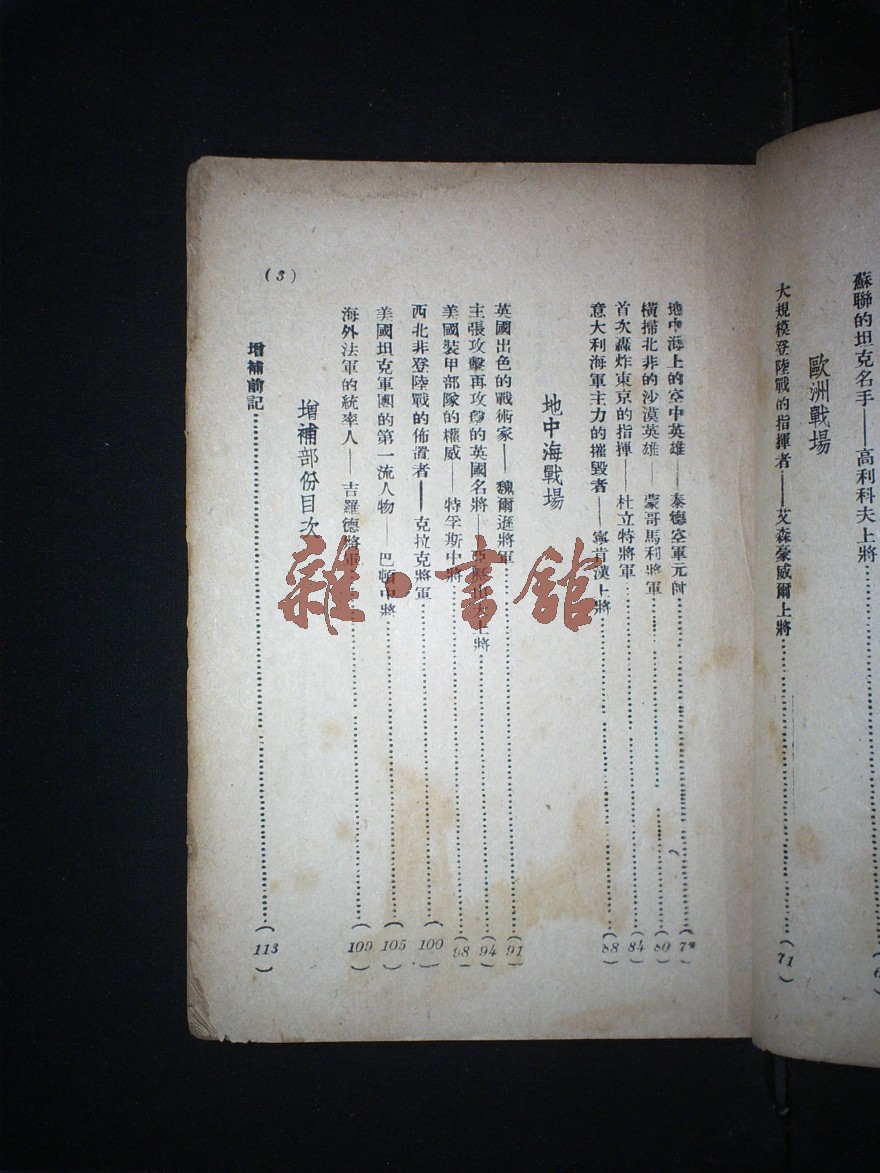 蘇聯的坦克名手——高利科夫上將
歐洲戰場
大規模登陸戰的指揮者——艾森豪威爾上將 (71)
地中海上的空中英雄——泰德空軍元帥
橫掃北非的沙漠英雄——蒙哥馬利將軍 (80)
首次轟炸東京的指揮——杜立特將軍 (84)
意大利海軍主力的摧毀者——寗肯漢上將 (88)
地中海戰場
英國出色的戰術家——魏爾遜將軍 (91)
主張攻擊再攻擊的英國名將——亞歷山大上將 (94)
美國裝甲部隊的權威——特孚斯中將 (98)
西北非登陸戰的佈置者——克拉克將軍 (100)
美國坦克軍團的第一流人物——巴頓中將 (105)
海外法軍的統率人——吉羅德將軍 (109)
增補部份目次
增補前記 (113)
(3)
雜·書館